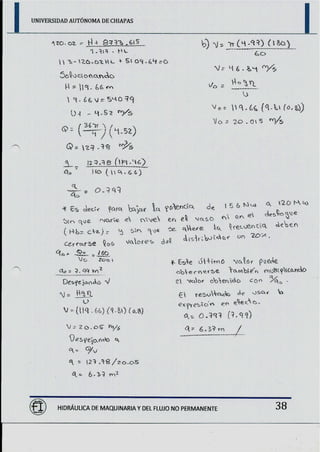 UNIVERSIDAD AUTÓNOMA DE CHIAPAS
120.02 = H + 8273.615
b) V = π (4.97) (180)
60
113-120.02HL + 5109.64 = 0
V = 46.84 m/s
Solucionando
H = 119.66 m
Vo = H n g η
U
Q = (36π/4)(4.52)
Vo = 119.66 (9.81 (0.8))
Vo = 20.015 m/s
Q = 127.78 m³/s
q/qo = 127.78 (119.46)
110 (119.66)
q/qo = 0.797
* Es decir para bajar la potencia de 156 Mw a 120 Mw
sin que varie el nivel en el vaso ni en el desfogue
(Hb = cte) = y sin que se altere la frecuencia deben
cerrarse los valores del distribuidor un 20%.
qo = 7.99 m²
Despejando V
V = H g η
U
V = (119.66) (9.81) (0.8)
V = 20.05 m/s
Despejando q
q = Q/v
q = 127.78 / 20.05
q = 6.37 m²
* Este último valor puede
obtenerse también multiplicando
el valor obtenido con q/qo.
El resultado de usar la
expresión en efecto.
q = 0.797 (7.99)
q = 6.37 m
HIDRÁULICA DE MAQUINARIA Y DEL FLUJO NO PERMANENTE
38